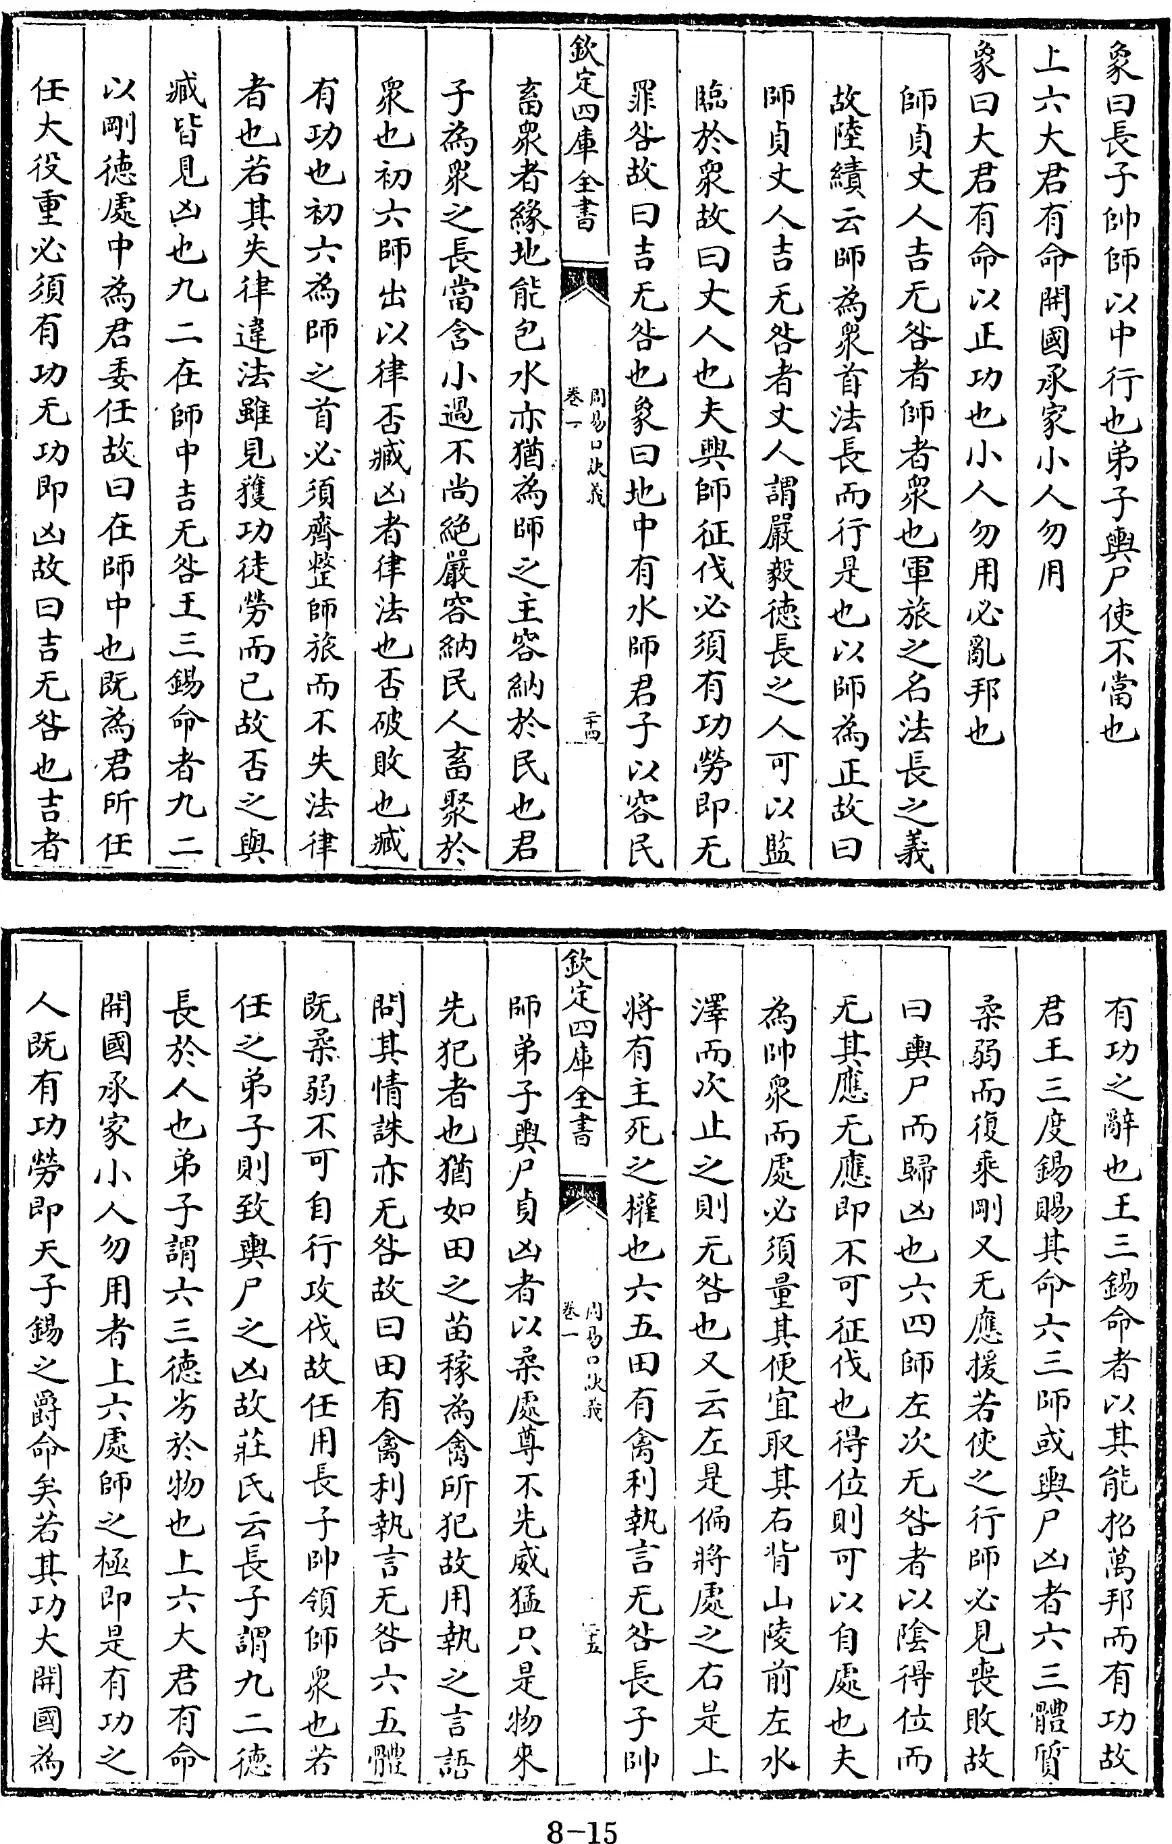 象曰長子帥師以中行也弟子輿尸使不當也
上六大君有命開國承家小人勿用
象曰大君有命以正功也小人勿用必亂邦也
師貞丈人吉无咎者師者衆也軍旅之名法長之義
故陸績云師為衆首法長而行是也以師為正故曰
師貞丈人吉无咎者丈人謂嚴毅德長之人可以監
臨於衆故曰丈人也夫興師征伐必須有功勞即无
罪咎故曰吉无咎也象曰地中有水師君子以容民
欽定四庫全書
周易口訣義
卷一
二十四
畜衆者緣地能包水亦猶為師之主容納於民也君
子為衆之長當含小過不尚絶嚴容納民人畜聚於
衆也初六師出以律否臧凶者律法也否破敗也臧
有功也初六為師之首必須齊整師旅而不失法律
者也若其失律違法雖見獲功徒勞而已故否之與
臧皆見凶也九二在師中吉无咎王三錫命者九二
以剛德處中為君委任故曰在師中也既為君所任
任大役重必須有功无功即凶故曰吉无咎也吉者
有功之辭也王三錫命者以其能招萬邦而有功故
君王三度錫賜其命六三師或輿尸凶者六三體質
柔弱而復乘剛又无應援若使之行師必見喪敗故
曰輿尸而歸凶也六四師左次无咎者以陰得位而
无其應无應即不可征伐也得位則可以自處也夫
為帥衆而處必須量其便宜取其右背山陵前左水
澤而次止之則无咎也又云左是偏將處之右是上
將有主死之權也六五田有禽利執言无咎長子帥
欽定四庫全書
周易口訣義
卷一
二十五
師弟子輿尸貞凶者以柔處尊不先威猛只是物來
先犯者也猶如田之苗稼為禽所犯故用執之言語
問其情誅亦无咎故曰田有禽利執言无咎六五體
既柔弱不可自行攻伐故任用長子帥領師衆也若
任之弟子則致輿尸之凶故莊氏云長子謂九二德
長於人也弟子謂六三德劣於物也上六大君有命
開國承家小人勿用者上六處師之極即是有功之
人既有功勞即天子錫之爵命矣若其功大開國為
8-15